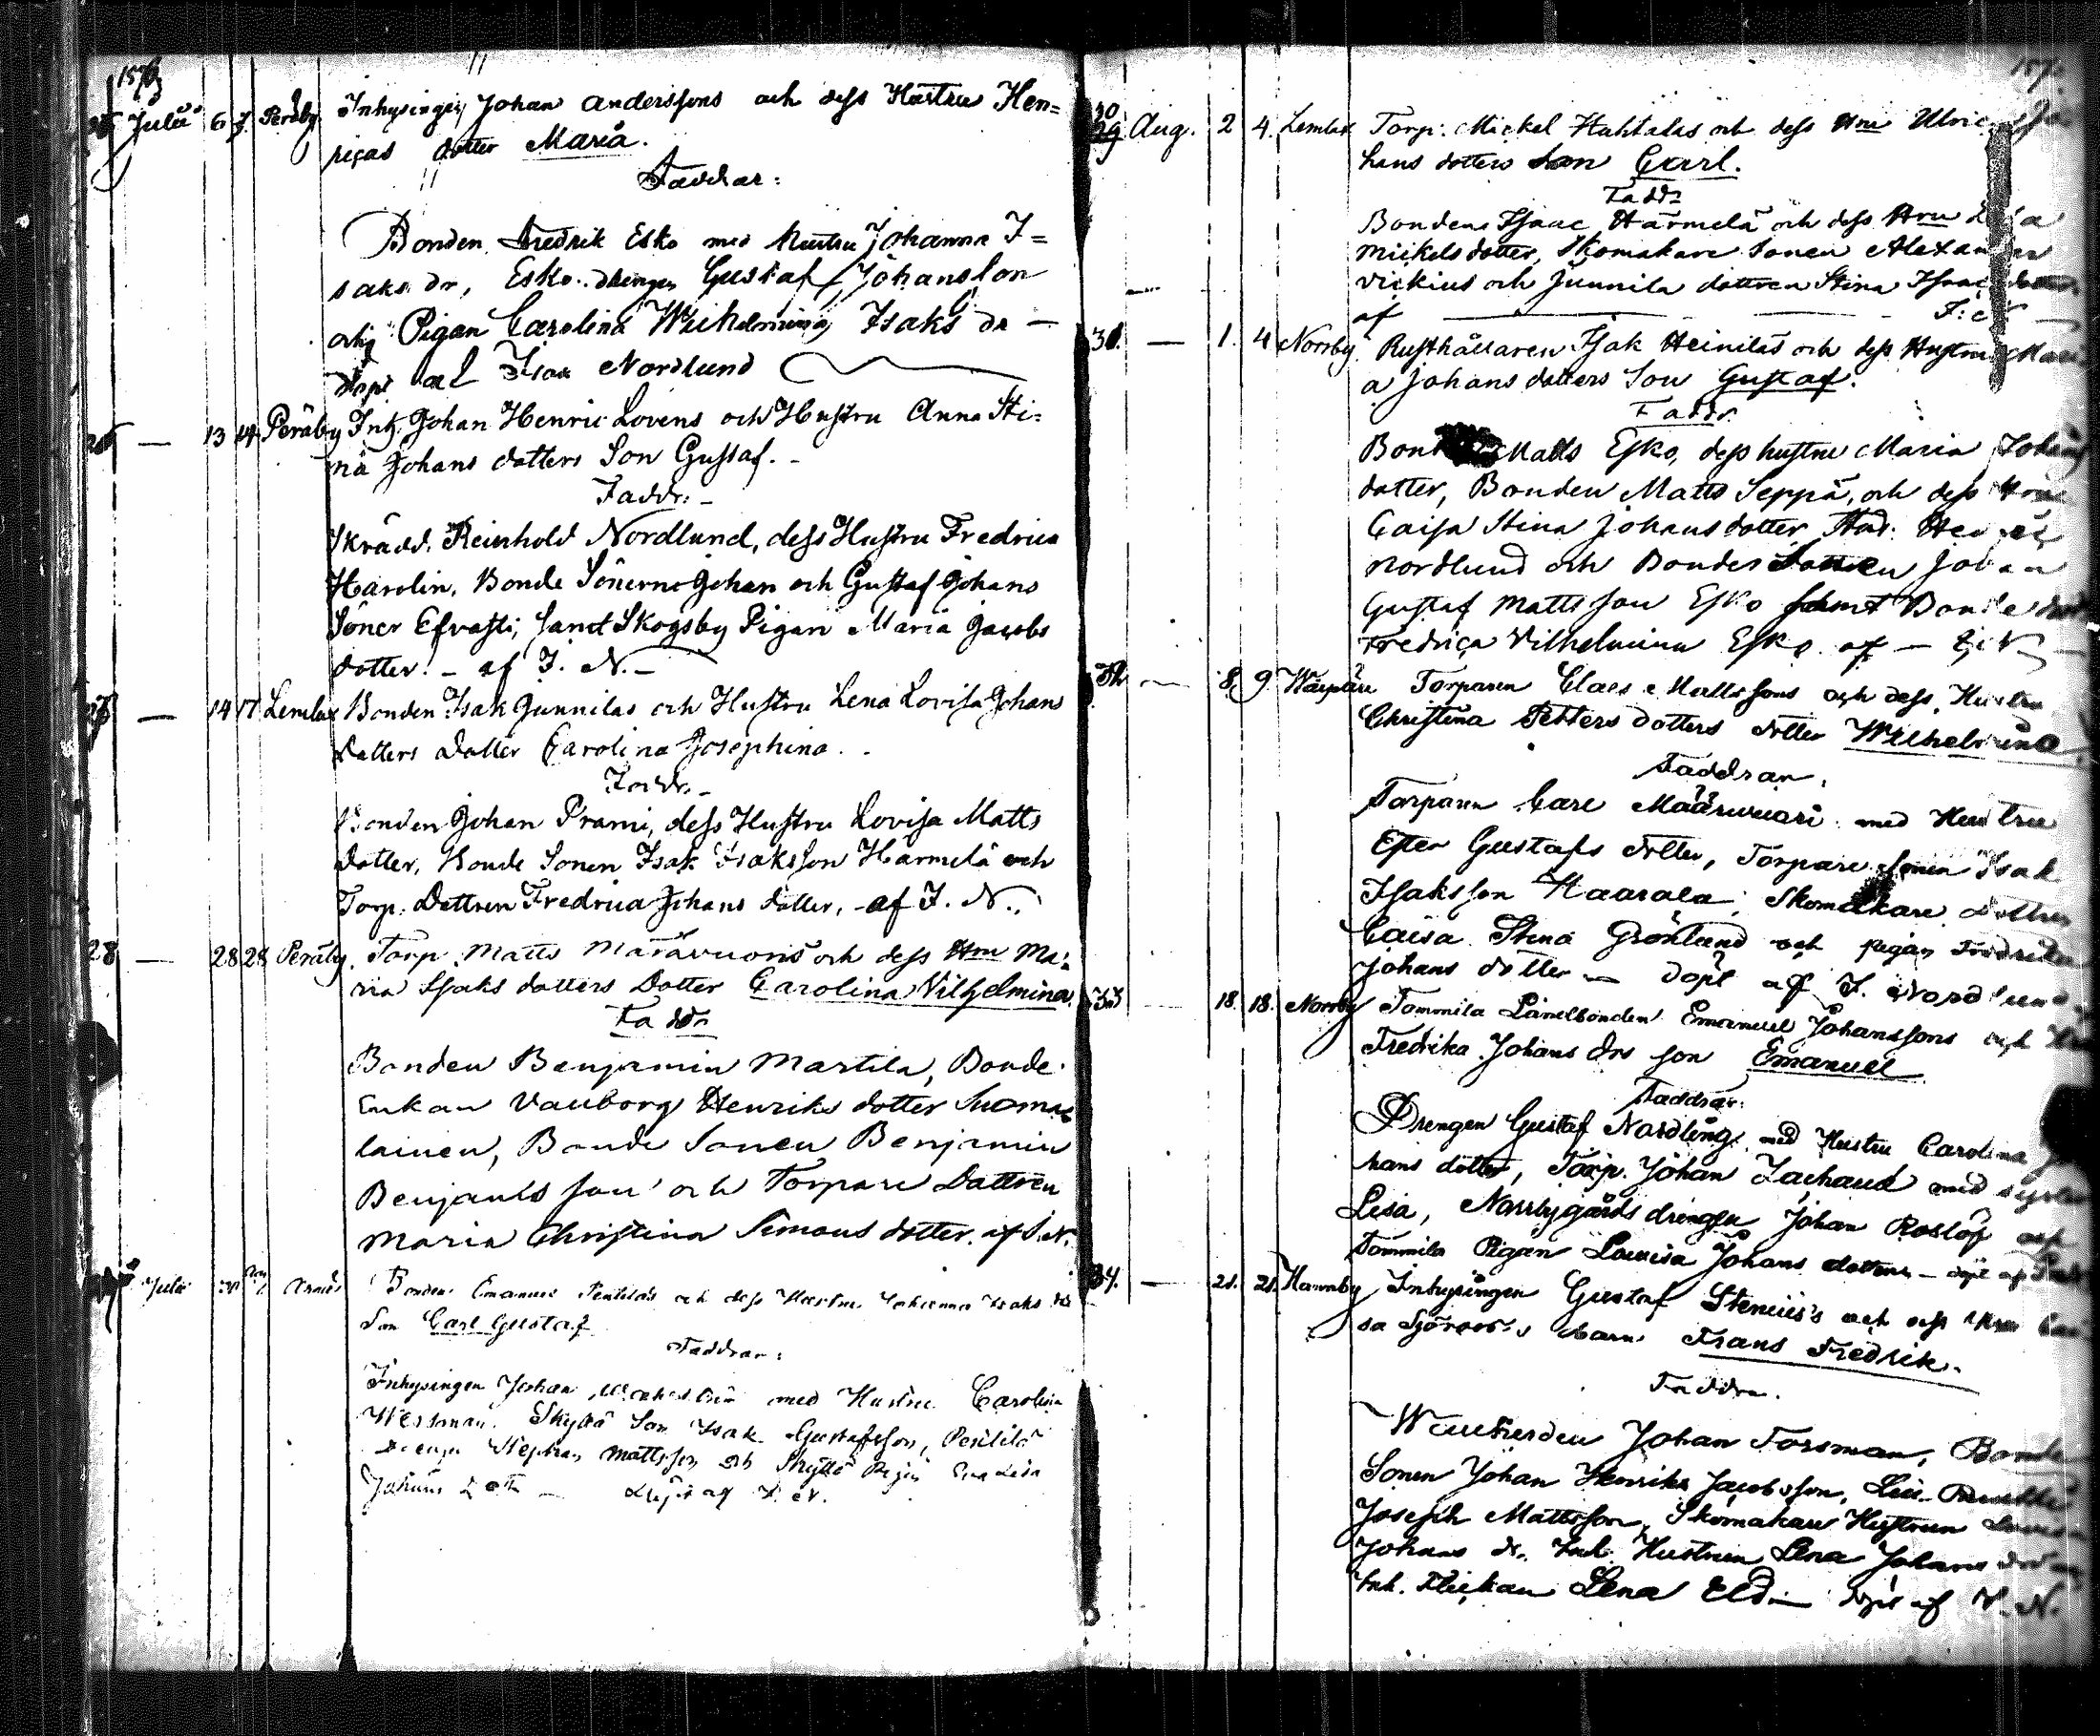 Julii 6 7 Peräby Inhysingen Johan Anderssons och dess Hustru Hen=
ricas dotter Maria.
Faddrar:
Bonden Fredrik Esko med Hustru Johanna I=
saks dr, Esko drengen Gustaf Johansson
och Pigan Carolina Wilhelmina Isaks dr —
döpt af Isak Nordlund
— 13 14 Peräby Inh. Johan Henric Lovens och Hustru Anna Sti=
na Johans dotters Son Gustaf. -
Faddr. -
Skrädd. Reinhold Nordlund, dess Hustru Fredrica
Harolin, Bonde Sönerne Johan och Gustaf Johans
Söner Efvasti, samt Skogsby Pigan Maria Jacobs
dotter. - af I. N. -
— 14 17 Lemlax Bonden Isak Junnilas och Hustru Lena Lovisa Johans
Dotters Dotter Carolina Josephina. -
Faddr. -
Bonden Johan Prami, dess Hustru Lovisa Matts
dotter, Bonde Sonen Isak Isaksson Härmelä och
Torp. Dottren Fredrica Johans dotter, - af I. N.
28 — 28 28 Peräby. Torp. Matts Määrävuoris och dess Hru Ma=
ria Isaks dotters Dotter Carolina Vilhelmina.
Faddr
Bonden Benjamin Martila, Bonde
Enkan Vauborg Henriks dotter Suoma
lainen, Bonde Sonen Benjamin
Benjamis son och Torpare Dottren
Maria Christina Simons dotter. af I. N.
Julii Bonden Emanuel Penttiläs och dess Hustru Johanna Isaks drs
Son Carl Gustaf
Faddrar:
Inhysingen Johan med Hustru Carolina
Wessman, Skyttä Son Isak Gustafsson, Penttilä
drengen Stephan Mattsson och Skyttä Pigan Eva Lisa
Johans dott — döpt af I. N.
30
29 Aug. 2 4. Lemlax Torp: Mickel Huhtalas och dess Hru Ulrica Jo
hans dotters Son Carl.
Faddr
Bonden Isaac Härmelä och dess Hru Lisa
Mickels dotter, Skomakare Sonen Alexander
Vickius och Junnila dottren Stina Isaacs dotter
af — I: N
31. — 1. 4 Norrby Rusthållaren Isak Heinilas och dess Hustru Mari
a Johans dotters Son Gustaf.
Faddr.
Bonden Matts Esko, dess hustru Maria Johans
dotter, Bonden Matts Seppä, och dess Hru
Caisa Stina Johans dotter,
Nordlund och Bonde Sonen Johan
Gustaf Mattsson Esko samt Bonde dott
Fredrica Vilhelmina Esko af — I: N
32 — 8 9 Torparen Claes Mattssons och dess Hustru
Christina Petters dotters dotter Wilhelmina
Faddrar.
Torparen Carl Määrävuori med Hustru
Ester Gustafs dotter, Torpare Sonen Isak
Isaksson Haarala, Skomakare dottren
Caisa Stina Grönlund och Pigan Fredrika
Johans dotter — döpt af I. Nordlund
33 18. 18. Norrby Tommila Landbonden Emanuel Johanssons och Hru
Fredrika Johans drs son Emanuel
Faddrar:
Drengen Gustaf Nordling med Hustru Carolina Jo
hans dotter, Torp. Johan Zachaus med syster
Lisa, Norrbygårds drengen Johan Roslöf och
Tommila Pigan Lovisa Johans dotter — döpt af
34. — 21. 21. Hammby Inhysingen Gustaf Stenius's och dess Hru Cai
sa Sjöroos's barn Frans Fredrik.
Faddra.
Johan Forsman, Bonde
Sonen Johan Henrik Jacobsson,
Joseph Mattsson, Skomakare Hustrun Lovisa
Johans dr. Inh. Hustrun Lena Johans dr
Inh. Flickan Lena Eld — döpt af I. N.